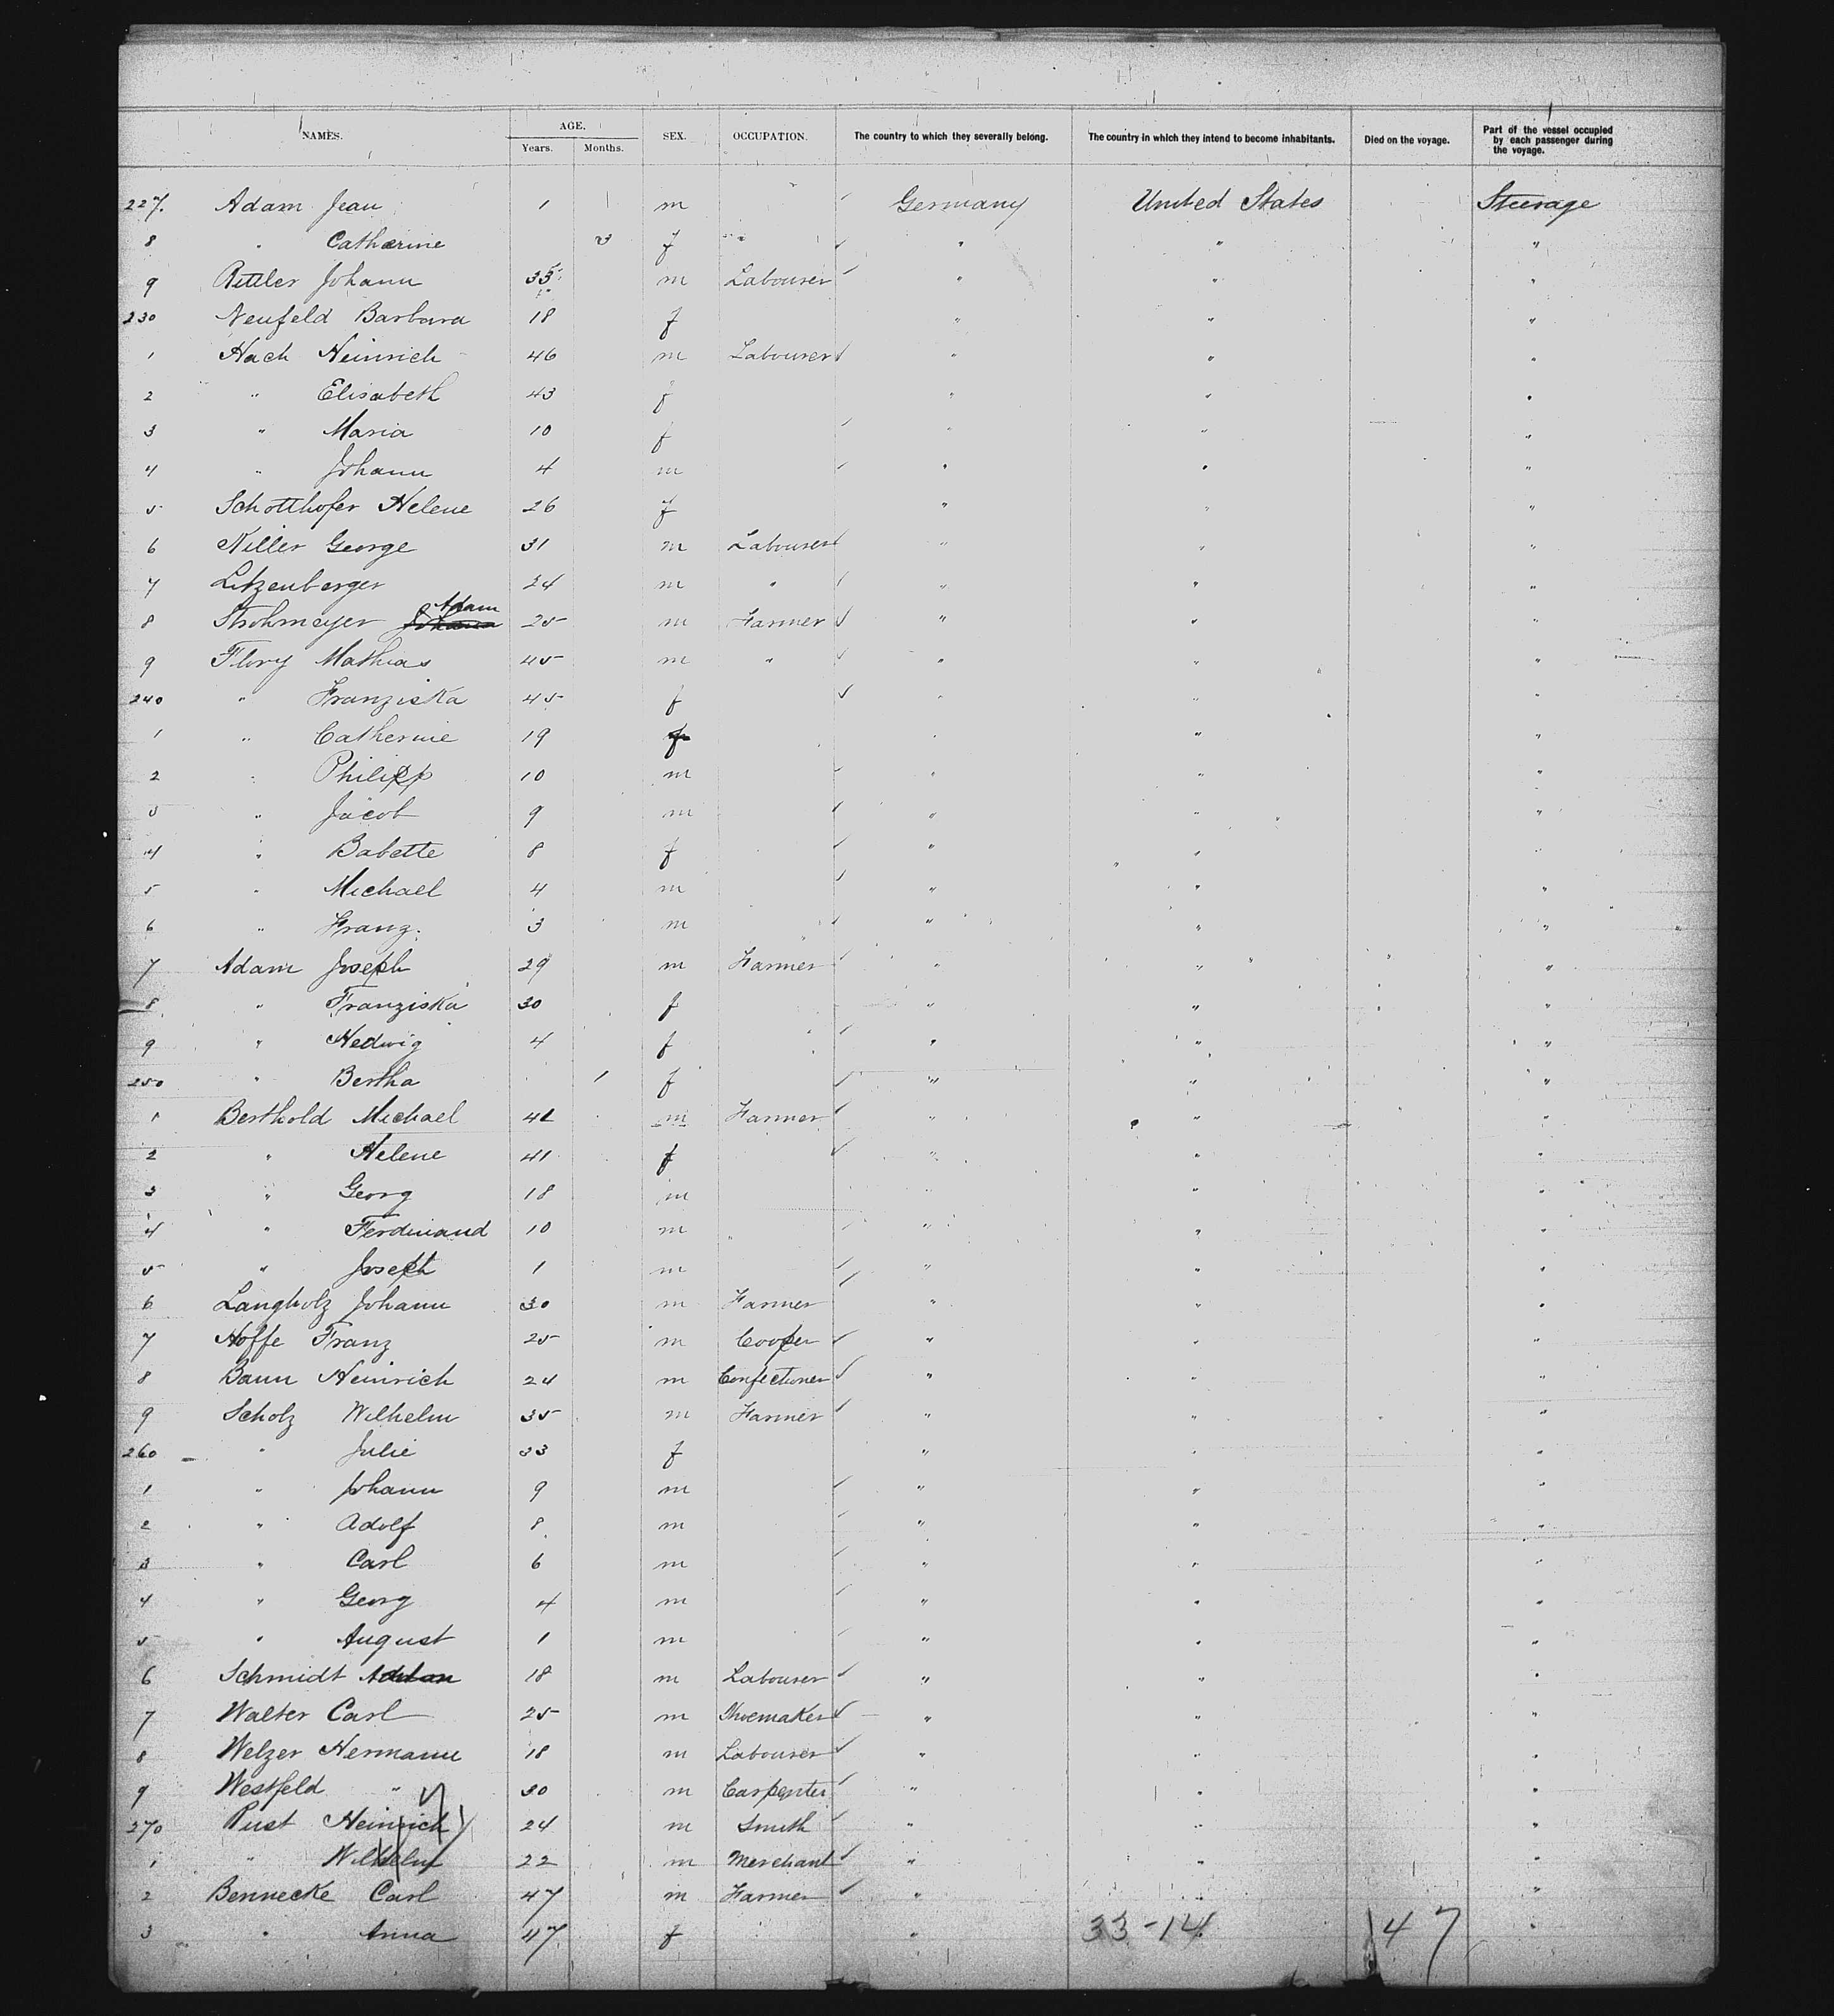 NAMES. AGE. SEX. OCCUPATION. The country to which they severally belong. The country in which they intend to become inhabitants. Died on the voyage. Part of the vessel occupied by each passenger during the voyage.
Years. Months.
227. Adam Jean 1 m Germany United States Steerage
8 " Catherine 3 f " " "
9 Johann 35 m Labourer " " "
230 Neufeld Barbara 18 f " " "
1 Hach Heinrich 46 m Labourer " " "
2 " Elisabeth 43 f " " "
3 " Maria 10 f " " "
4 " Johann 4 m " " "
5 Schotthofer Helene 26 f " " "
6 Killer George 31 m Labourer " " "
7 Litzenberger 24 m " " " "
8 Strohmeyer Johann Adam 25 m Farmer " " "
9 Flory Mathias 45 m " " " "
240 " Franziska 45 f " " "
1 " Catherine 19 f " " "
2 " Philipp 10 m " " "
3 " Jacob 9 m " " "
4 " Babette 8 f " " "
5 " Michael 4 m " " "
6 " Franz. 3 m " " "
7 Adam Joseph 29 m Farmer " " "
8 " Franziska 30 f " " "
9 " Hedwig 4 f " " "
250 " Bertha 1 f " " "
1 Berthold Michael 41 m Farmer " " "
2 " Helene 41 f " " "
3 " Georg 18 m " " "
4 " Ferdinand 10 m " " "
5 " Joseph 1 m " " "
6 Langholz Johann 30 m Farmer " " "
7 Hoffe Franz 25 m Cooper " " "
8 Baun Heinrich 24 m Confectioner " " "
9 Scholz Wilhelm 35 m Farmer " " "
260 " Julie 33 f " " "
1 " Johann 9 m " " "
2 " Adolf 8 m " " "
3 " Carl 6 m " " "
4 " Georg 4 m " " "
5 " August 1 m " " "
6 Schmidt 18 m Labourer " " "
7 Walter Carl 25 m Shoemaker " " "
8 Welzer Hermann 18 m Labourer " " "
9 Westfeld " 30 m Carpenter " " "
270 Pust Heinrich 24 m Smith " " "
1 " Wilhelm 22 m Merchant " " "
2 Bennecke Carl 47 m Farmer " " "
3 " Anna 47 f " 33-14 47 "